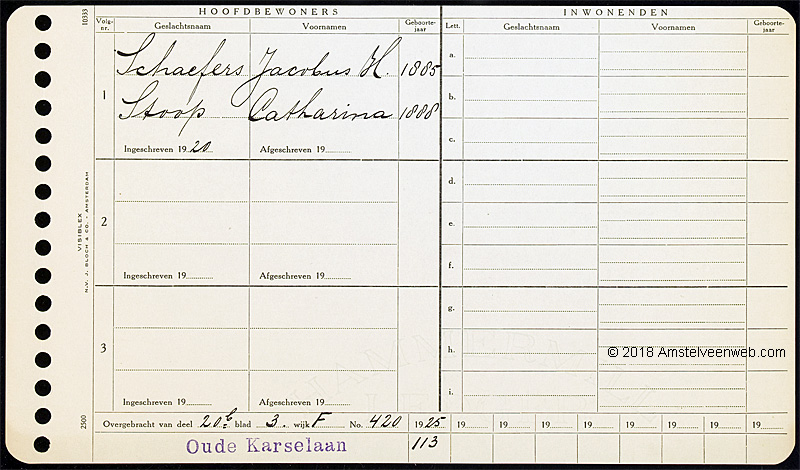 HOOFDBEWONERS INWONENDEN
10333
Volg-nr. Geslachtsnaam Voornamen Geboorte-jaar Lett. Geslachtsnaam Voornamen Geboorte-jaar
Schaefers Jacobus H. 1885 a.
1 b.
Stoop Catharina 1888
Ingeschreven 1920 Afgeschreven 19 c.
d.
2 e.
Ingeschreven 19 Afgeschreven 19 f.
VISIBLEX
N.V. J. BLOCH & CO. - AMSTERDAM
g.
3 h.
© 2018 Amstelveenweb.com
Ingeschreven 19 Afgeschreven 19 i.
2500
Overgebracht van deel 20b blad 3. wijk F No. 420 1925 19 19 19 19 19 19 19 19
Oude Karselaan 113